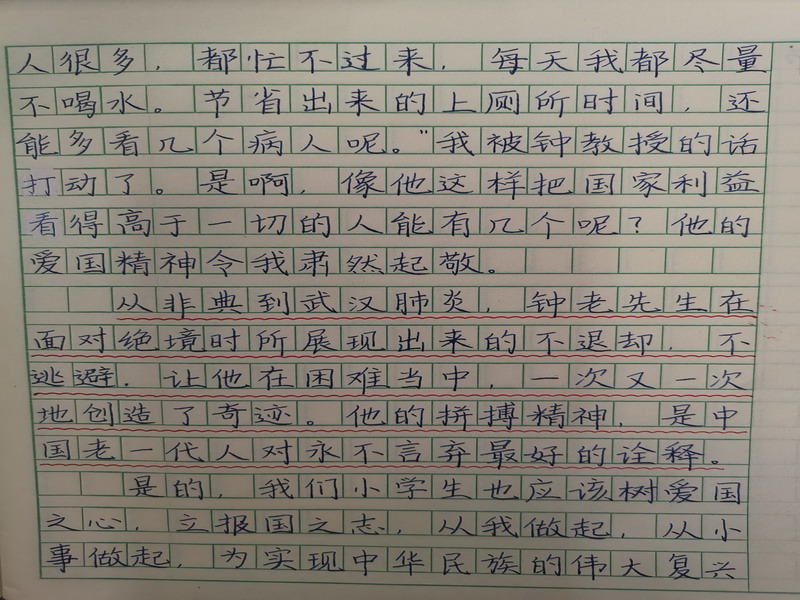 人很多，都忙不过来，每天我都尽量
不喝水。节省出来的上厕所时间，还
能多看几个病人呢。"我被钟教授的话
打动了。是啊，像他这样把国家利益
看得高于一切的人能有几个呢？他的
爱国精神令我肃然起敬。
从非典到武汉肺炎，钟老先生在
面对绝境时所展现出来的不退却，不
逃避，让他在困难当中，一次又一次
地创造了奇迹。他的拼搏精神，是中
国老一代人对永不言弃最好的诠释。
是的，我们小学生也应该树爱国
之心，立报国之志，从我做起，从小
事做起，为实现中华民族的伟大复兴